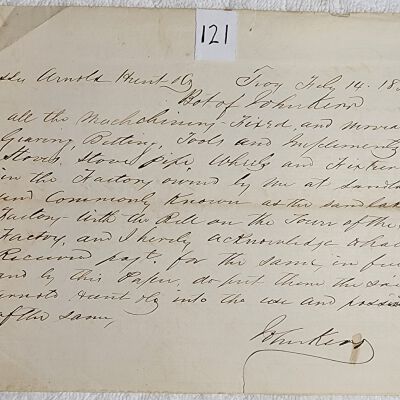 121
Arnold Hunt & Co Troy July 14. 18
Bot of John Kerr
all the Machinery Fixed, and movea
Gearing, Belting, Tools and Implements
Stoves, Stove pipe Wheels and Fixtur
in the Factory owned by me at sandla
and Commonly Known as the sandlake
Factory with the Bell on the Town of the
Factory, and I hereby acknowledge tha
Received payt. for the same, in fu
and by this Paper, do put them the sai
arnold Hunt & Co into the use and posses
of the same,
John Kerr